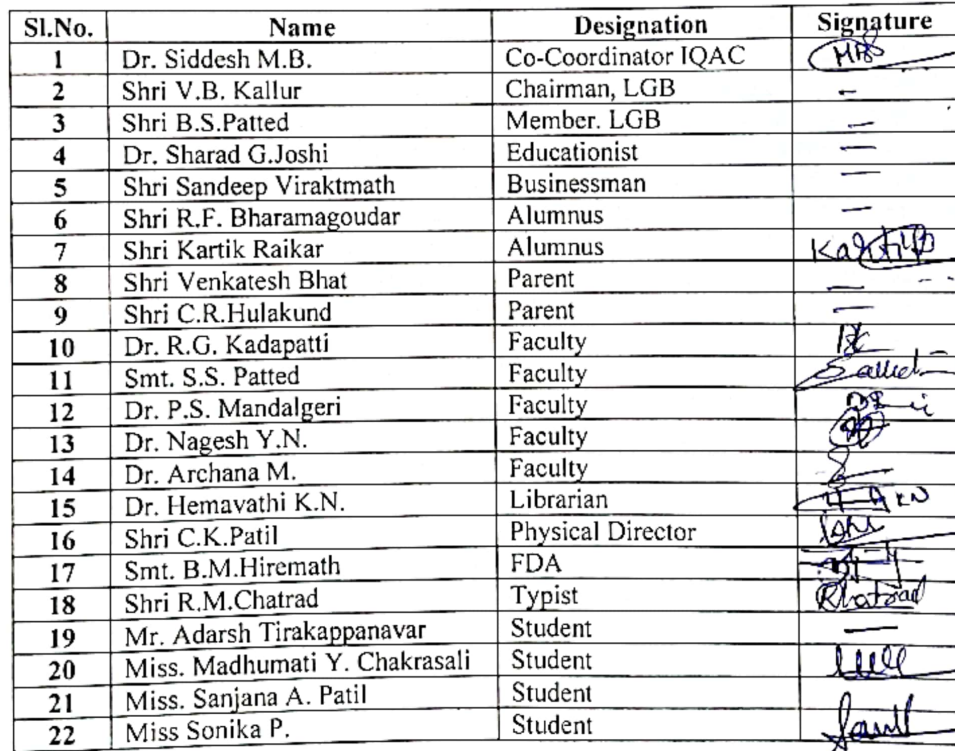 Sl.No. Name Designation Signature
1 Dr. Siddesh M.B. Co-Coordinator IQAC
2 Shri V.B. Kallur Chairman, LGB -
3 Shri B.S.Patted Member. LGB -
4 Dr. Sharad G.Joshi Educationist -
5 Shri Sandeep Viraktmath Businessman -
6 Shri R.F. Bharamagoudar Alumnus -
7 Shri Kartik Raikar Alumnus
8 Shri Venkatesh Bhat Parent -
9 Shri C.R.Hulakund Parent -
10 Dr. R.G. Kadapatti Faculty
11 Smt. S.S. Patted Faculty
12 Dr. P.S. Mandalgeri Faculty
13 Dr. Nagesh Y.N. Faculty
14 Dr. Archana M. Faculty
15 Dr. Hemavathi K.N. Librarian
16 Shri C.K.Patil Physical Director
17 Smt. B.M.Hiremath FDA
18 Shri R.M.Chatrad Typist
19 Mr. Adarsh Tirakappanavar Student -
20 Miss. Madhumati Y. Chakrasali Student
21 Miss. Sanjana A. Patil Student
22 Miss Sonika P. Student